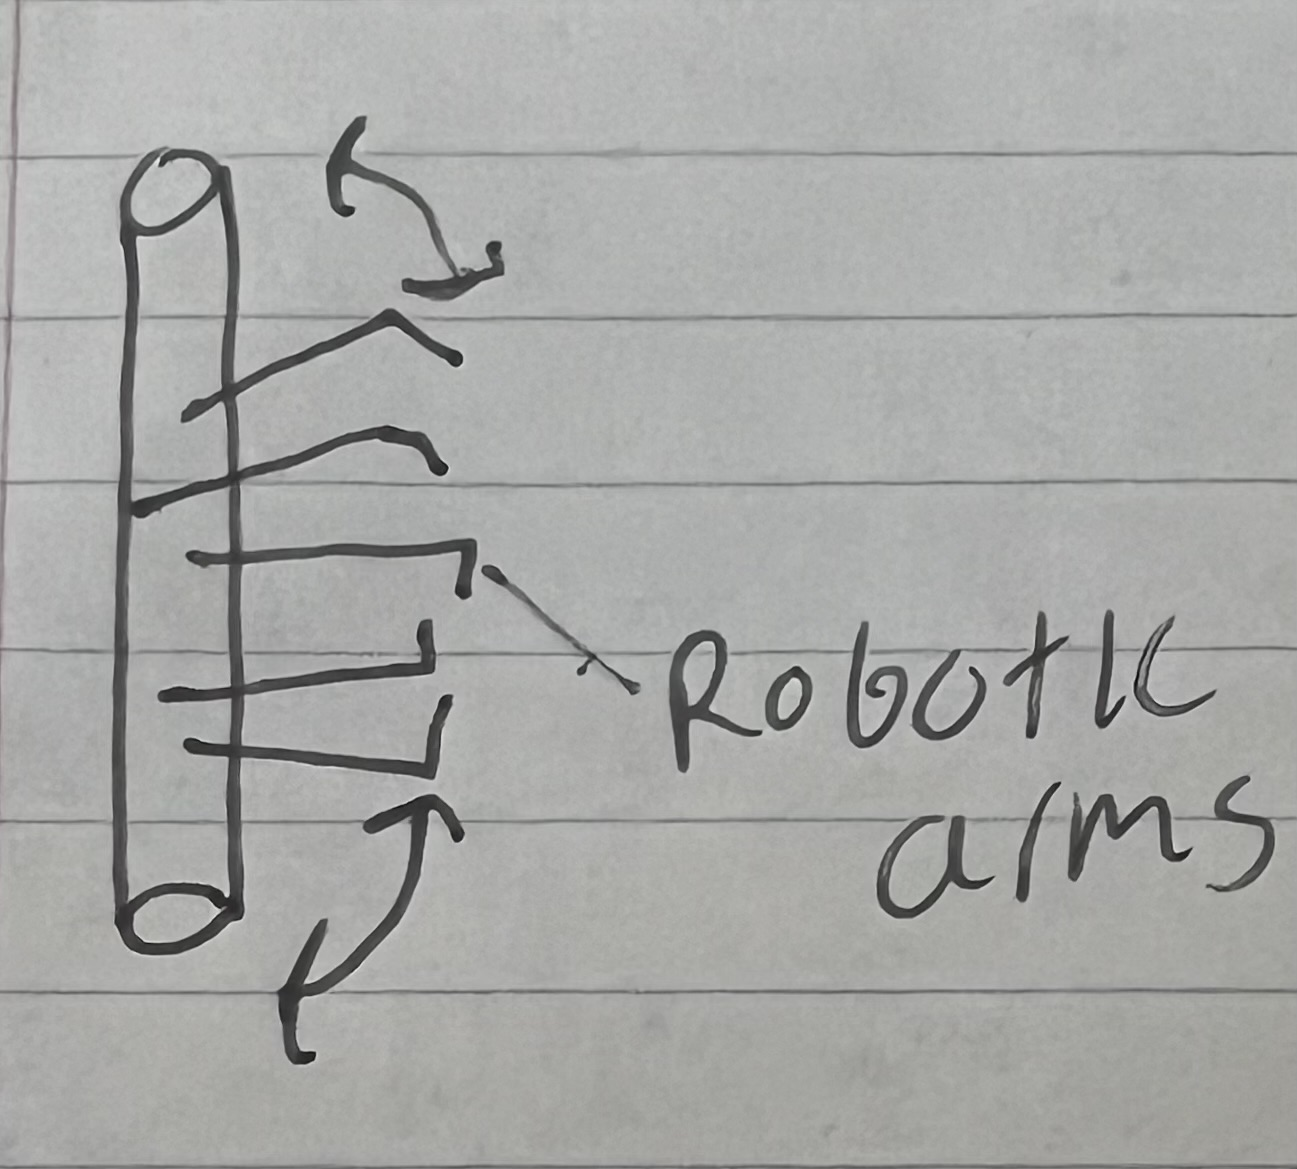 Robotic
arms